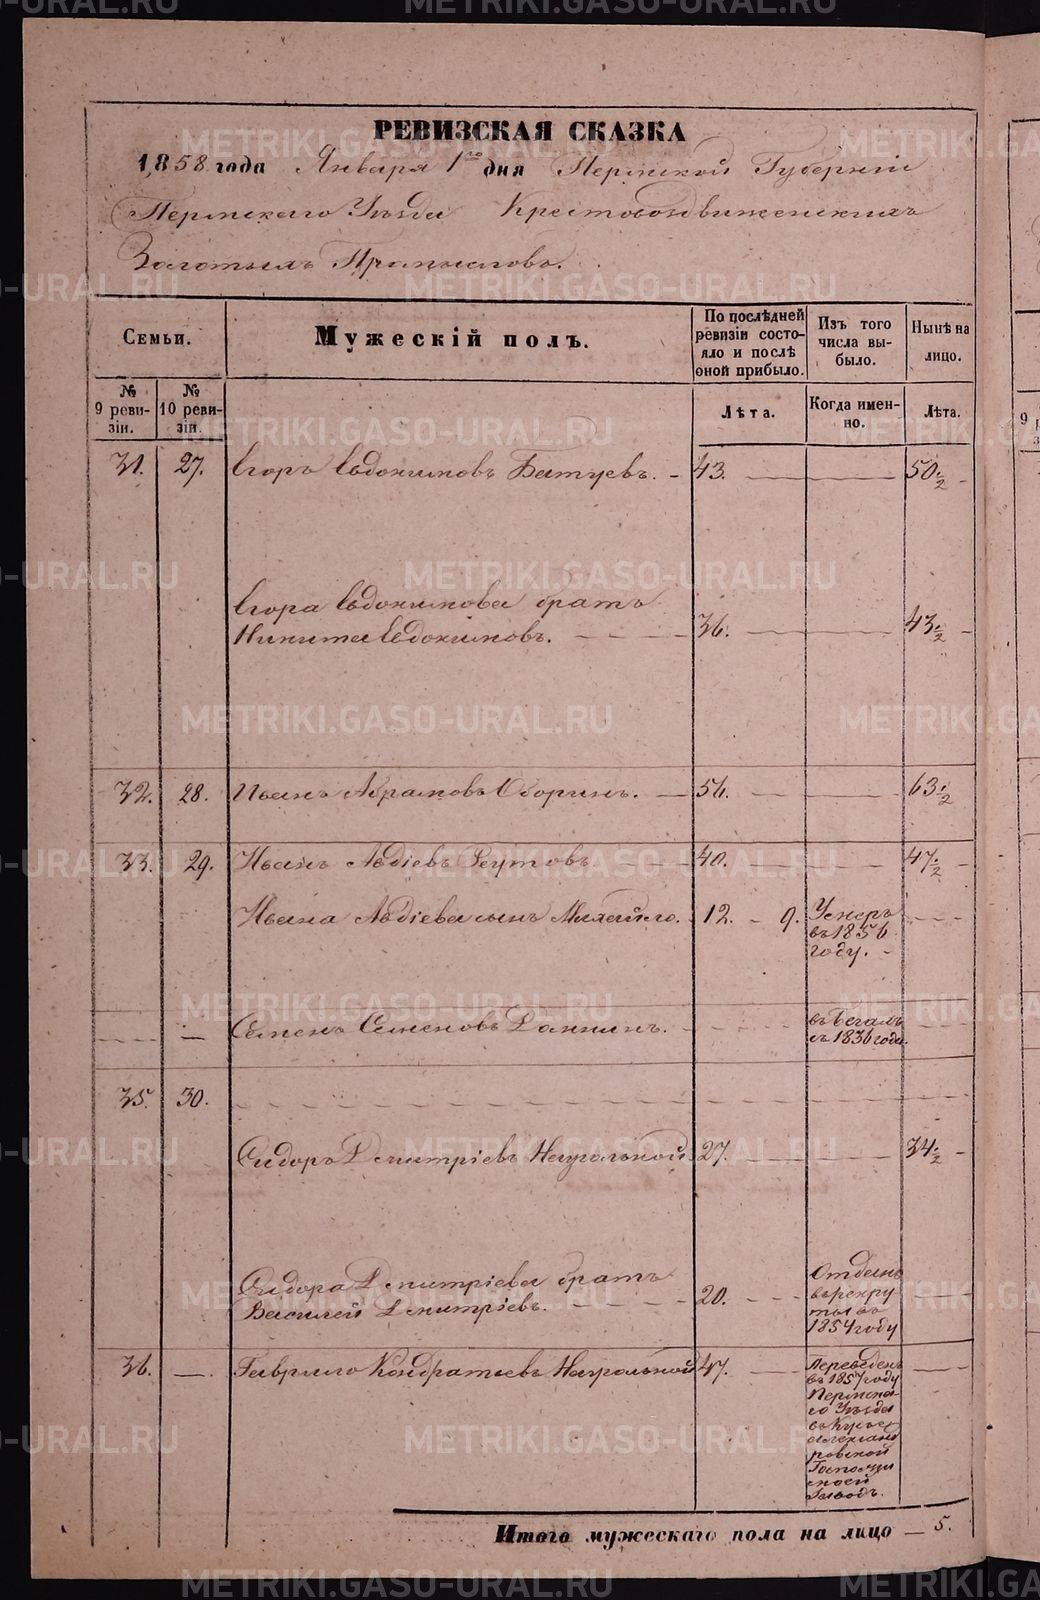 РЕВИЗСКАЯ СКАЗКА
1858 года Января 1го дня Пермской Губерніи
Пермскаго Уѣзда Крестовоздвиженскихъ
Золотыхъ Промысловъ.
Семьи.
Мужескій полъ.
По послѣдней ревизіи состояло и послѣ оной прибыло.
Изъ того числа выбыло.
Нынѣ на лицо.
№ 9 ревизіи.
№ 10 ревизіи.
Лѣта.
Когда именно.
Лѣта.
31. 27. Егоръ Евдокимовъ Батуевъ. 43. 50 1/2
Егора Евдокимова братъ
Никита Евдокимовъ. 36. 43 1/2
32. 28. Иванъ Абрамовъ Оборинъ. 56. 63 1/2
33. 29. Иванъ Авдіевъ Реутовъ 40. 47 1/2
Ивана Авдіева сынъ Михайло. 12. - 9. Умеръ
въ 1856
году.
Семенъ Семеновъ Данилинъ. въ бегахъ
съ 1836 года.
35. 30.
Сидоръ Дмитріевъ Нагольной 27. 34 1/2
Сидора Дмитріева братъ
Василей Дмитріевъ. 20. Отданъ
въ рекру
ты въ
1854 году
36. Гаврило Кондратьевъ Нагольной 47. Переведенъ
въ 1857 году
Пермска
го Уѣзда
въ
александ
ровской
Господи
ской
Заводъ.
Итого мужескаго пола на лицо — 5.
METRIKI.GASO-URAL.RU